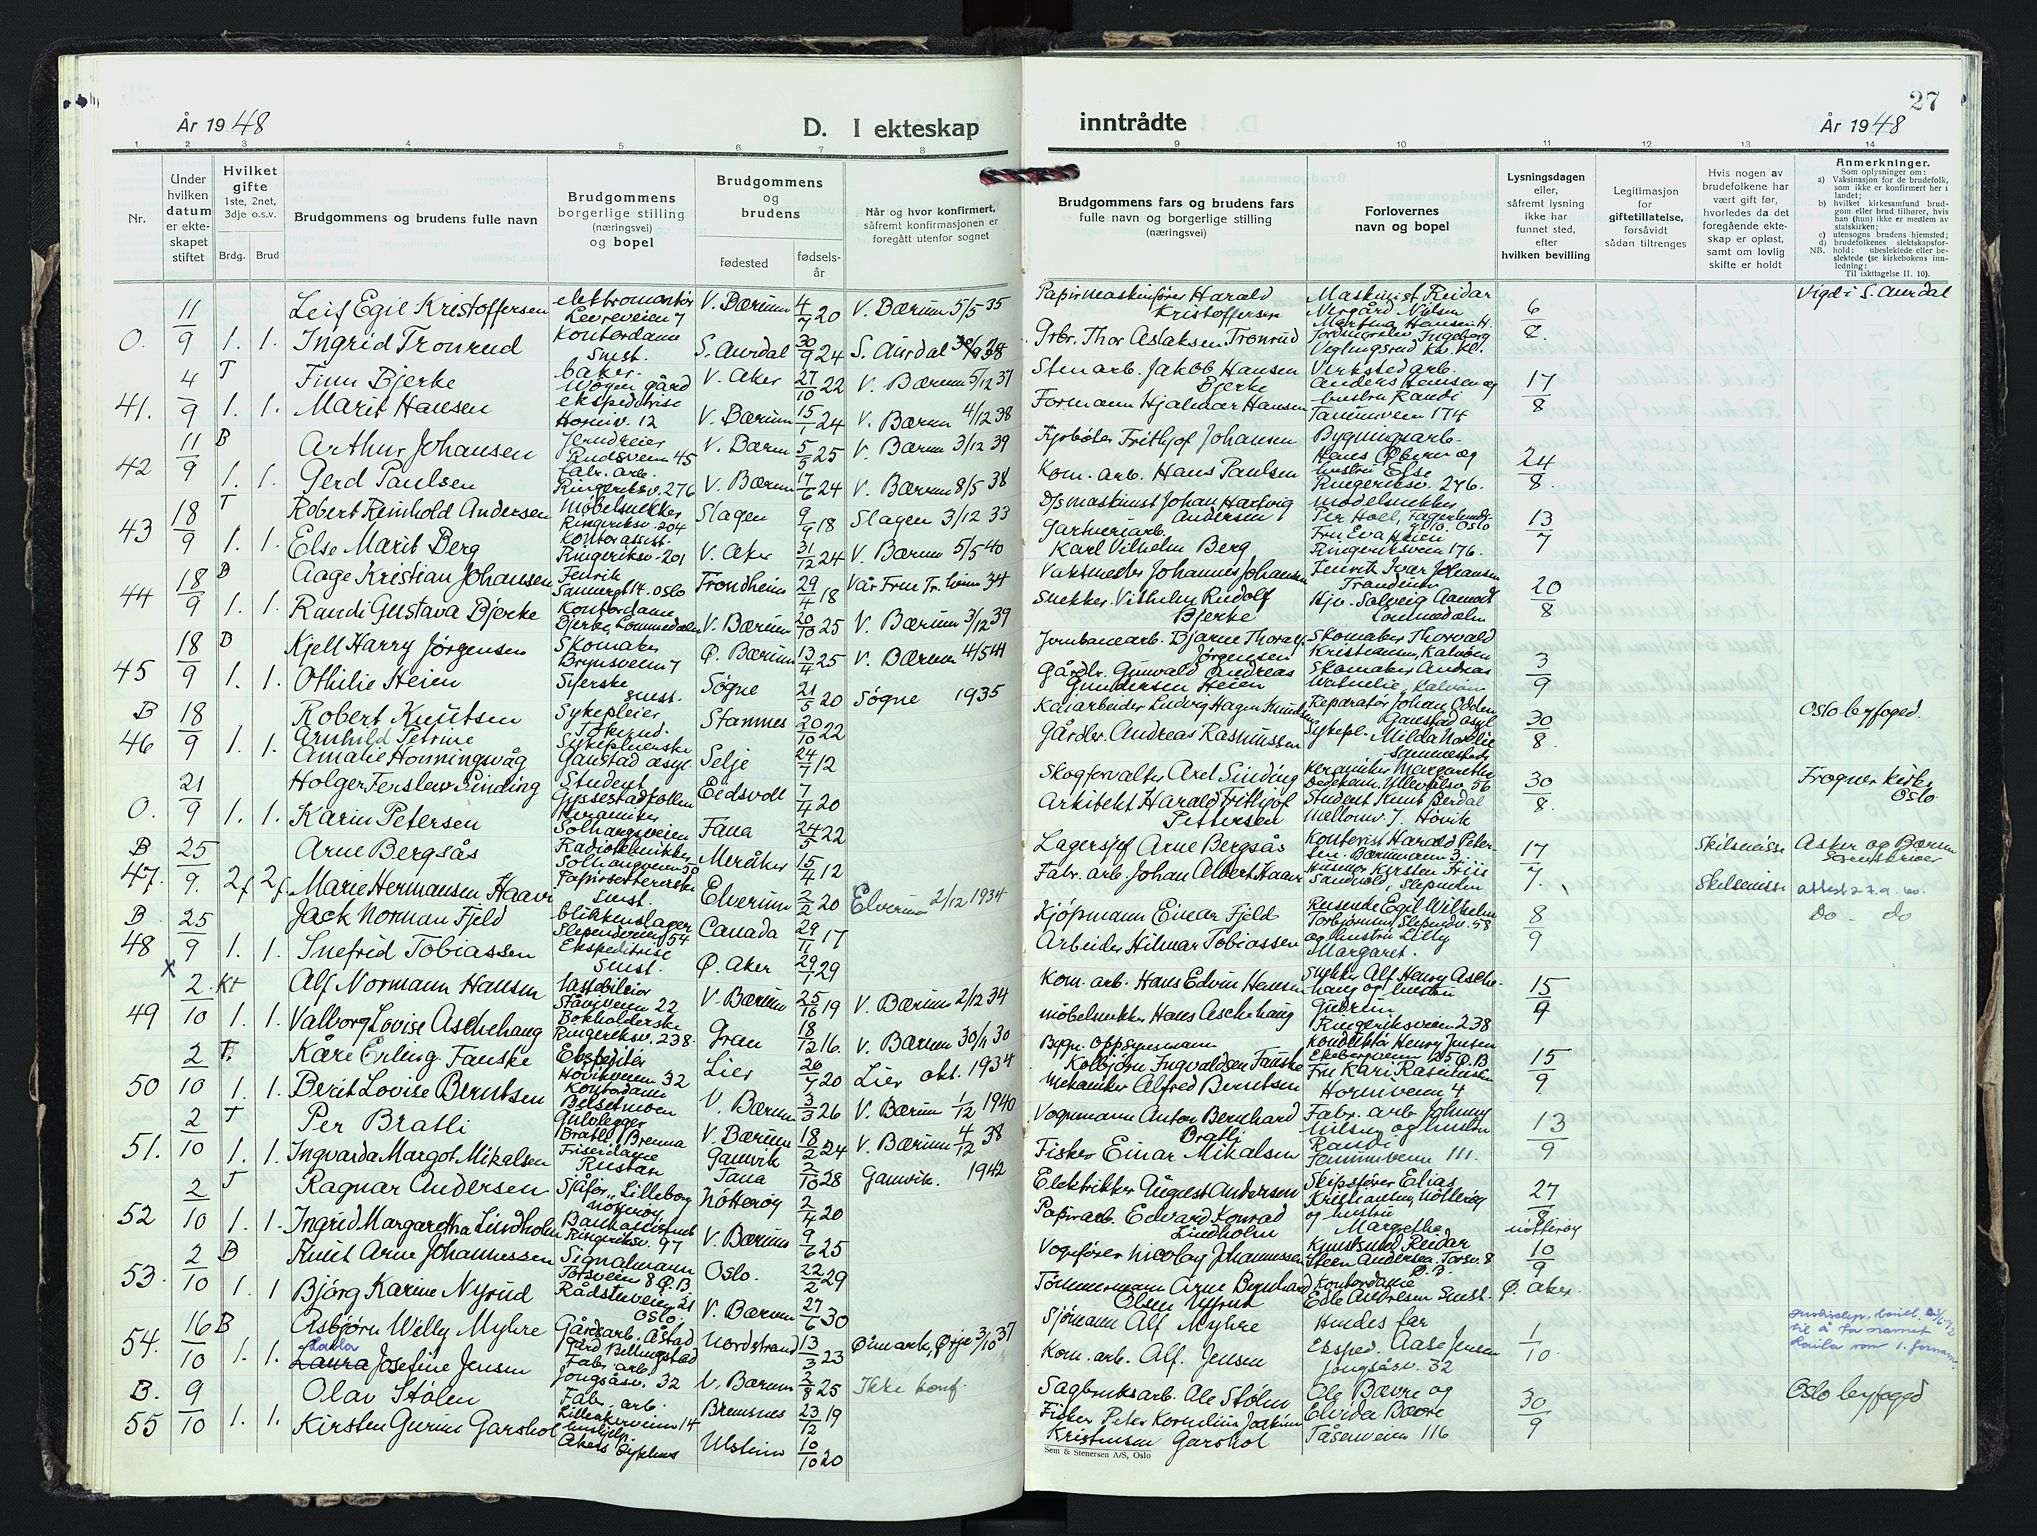 27
År 1948
D. I ekteskap
inntrådte
År 1948
1 2 3 4 5 6 7 8 9 10 11 12 13 14
Nr.
Under
hvilken
datum
er ekte-
skapet
stiftet
Hvilket
gifte
1ste, 2net,
3dje o.s.v.
Brdg. Brud
Brudgommens og brudens fulle navn
Brudgommens
borgerlige stilling
(næringsvei)
og bopel
Brudgommens
og
brudens
fødested
fødsels-
år
Når og hvor konfirmert,
såfremt konfirmasjonen er
foregått utenfor sognet
Brudgommens fars og brudens fars
fulle navn og borgerlige stilling
(næringsvei)
Forlovernes
navn og bopel
Lysningsdagen
eller,
såfremt lysning
ikke har
funnet sted,
efter
hvilken bevilling
Legitimasjon
for
giftetillatelse,
forsåvidt
sådan tiltrenges
Hvis nogen av
brudefolkene har
vært gift før,
hvorledes da det
foregående ekte-
skap er opløst,
samt om lovlig
skifte er holdt
Anmerkninger.
Som oplysninger om:
a) Vaksinasjon for de brudefolk,
som ikke er konfirmert her i
landet;
b) hvilket kirkesamfund brud-
gom eller brud tilhører, hvis
han (hun) ikke er medlem av
statskirken;
c) utensogns brudens hjemsted;
d) brudefolkenes slektskapsfor-
NB. hold: ubeslektede eller be-
slektede (se kirkebokens inn-
ledning:
Til iakttagelse II. 10).
O. 11/9 1. 1.
Leif Egil Kristoffersen elektromontør Levreveien 7 V. Bærum 4/7 20 V. Bærum 5/5 35 Papirmaskinfører Harald Kristoffersen Maskinist Reidar 6/8. Vigd i S. Aurdal
Ingrid Tronrud Kontordame Smst. S. Aurdal 30/9 24 S. Aurdal Grbr. Thor Aslaksen Tronrud
41. 4/9 T 1. 1.
Finn Bjerke baker. Wøyen gård V. Aker 27/10 22 V. Bærum 5/12 37 Stenarb. Jakob Hansen Bjerke Verkstedarb. Anders Hansen og hustru Randi 17/8
Marit Hansen ekspeditrise Horniv. 12 V. Bærum 15/1 24 V. Bærum 4/12 38 Formann Hjalmar Hansen Tanumveien 174
42 11/9 B 1. 1.
Arthur Johansen Jerndreier Rudsveien 45 V. Bærum 5/5 25 V. Bærum 3/12 39 Fyrbøter Frithjof Johansen Bygningsarb. Hans Øbern og 24/8.
Gerd Paulsen Fabr. arb. Ringeriksv. 276 V. Bærum 17/6 24 V. Bærum 8/5 38 Kom. arb. Hans Paulsen hustru Else Ringeriksv. 276.
43 18/9 T 1. 1.
Robert Reinhold Andersen Møbelsnekker Ringeriksv. 204 Slagen 9/9 18 Slagen 3/12 33 D/s maskinist Johan Hartvig Andersen modelsnekker Per Hoel, Oslo 13/7
Else Marit Berg Kontorassist. Ringeriksv. 201 V. Aker 31/12 24 V. Bærum 5/5 40 Gartneriarb. Karl Vilhelm Berg Fru Eva Heien Ringeriksveien 176.
44 18/9 B 1. 1.
Aage Kristian Johansen Fenrik Oslo Trondheim 29/4 18 Vår Frue Tr. heim 34 Vaktmester Johannes Johansen Fenrik Ivar Johansen Trandum 20/8
Randi Gustava Bjerke Kontordame Bjerke, Lommedalen V. Bærum 20/10 25 V. Bærum 3/12 39 Snekker Vilhelm Rudolf Bjerke Hjv. Solveig Aamodt Lommedalen
45 18/9 B 1. 1.
Kjell Harry Jørgensen Skomaker Brynsveien 7 Ø. Bærum 13/4 25 V. Bærum 4/5 41 Jernbanearb. Bjarne Thoralf Jørgensen Skomaker Thorvald Kristiansen, Kalvøen 3/9
Othilie Heien Syerske smst. Søgne 21/5 20 Søgne 1935 Gårdbr. Gunvald Andreas Gundersen Heien Skomaker Andreas
B 46 18/9 1. 1.
Robert Knutsen Sykepleier Tokerud. Stamnes 20/10 22 Kaiarbeider Ludvig Hagen Knutsen Reparatør Johan Odden Gaustad asyl 30/8. Oslo byfoged.
Arnhild Petrine Amalie Honningsvåg Sykepleierske Gaustad asyl. Selje 24/7 12 Gårdbr. Andreas Rasmussen Sykepl. Milda
O. 21/9 1. 1.
Holger Ferslew Sinding Student Gyssestadkollen Eidsvoll 7/4 20 Skogforvalter Axel Sinding Keramiker Margarethe 30/8. Frogner kirke Oslo
Karin Petersen Keramiker Solhaugveien Fana 24/5 22 Arkitekt Harald Frithjof Pettersen Student Knut Berdal Mellomv. 7. Høvik
B 47. 25/9. 2f 2f.
Arne Bergsås Radiotekniker Solhaugveien 50 Meråker 15/4 12 Lagersjef Arne Bergsås Kontorist Harald Petersen. Bærumveien 3, 17/7. Skilsmisse Asker og Bærum Sorenskriver
Marie Hermansen Haavi Papirsorterske smst. Elverum 2/2 20 Elverum 2/12 1934 Fabr. arb. Johan Albert Haavi Kirsten Friis Sandvold, Slependen Skilsmisse attest 27.9.60.
B. 48 25/9 1. 1.
Jack Norman Fjeld blikkenslager Slependveien 54 Canada 29/11 17 Kjøpmann Einar Fjeld Reisende Egil Wilhelm Torbjørnsen, Slependv. 58 8/9 Do - do
Snefrid Tobiassen Ekspeditrise Smst. Ø. Aker 29/1 29 Arbeider Hilmar Tobiassen og hustru Lilly Margaret.
49 x 2/10 Kt 1. 1.
Alf Normann Hansen lastebileier Ståviveien 22 V. Bærum 25/10 19 V. Bærum 2/12 34 Kom. arb. Hans Edvin Hansen Snekker Alf Henry Aschehaug og hustru 15/9
Valborg Lovise Aschehaug Bokholderske Ringeriksv. 238. Gran 18/12 16. V. Bærum 30/11 30 møbelsnekker Hans Aschehaug Gudrun Ringeriksveien 238
50 2/10 T. 1. 1.
Kåre Erling Fauske Ekspeditør Høvikveien 32 Lier 26/7 20 Lier okt. 1934 Bygn. oppsynsmann Kolbjørn Ingvaldsen Fauske Konduktør Henry Jensen Ekebergveien 125 Ø.B. 15/9.
Berit Lovise Berntsen Kontordame Belsetmoen V. Bærum 3/3 26 V. Bærum 1/12 1940 Mekaniker Alfred Berntsen Fru Kari Rasmussen Horniveien 4
51. 2/10 T 1. 1.
Per Bratli Gulvlegger Bratli, Brenna V. Bærum 18/2 24 V. Bærum 4/12 38 Vognmann Anton Bernhard Bratli Fabr. arb. Johnny Nilsen og hustru 13/9
Ingvarda Margot Mikalsen Friserdame Rustan Gamvik Tana 2/10 28 Gamvik. 1942 Fisker Einar Mikalsen Randi Tanumveien 111.
52 2/10 T 1. 1.
Ragnar Andersen Sjåfør, Lilleborg Nøtterøy Nøtterøy 2/4 20 Elektrikker August Andersen Skipsfører Elias Kristiansen, Nøtterøy og hustru 27/8 Nøtterøy
Ingrid Margaretha Lindholm Bankassistent Ringeriksv. 97 V. Bærum 9/6 25 Papirarb. Edvard Konrad Lindholm Margethe
53. 2/10 B 1. 1
Knut Arne Johannessen Signalmann Torsveien 8 Ø.B. Oslo. 22/2 29 Vognfører Nicolay Johannessen Kunstsmed Reidar Steen Andersen. Torsv. 8 Ø.B. 10/9 Ø. Aker.
Bjørg Karine Nyrud Rådstuveien 21 Oslo V. Bærum 27/6 30 Tømmermann Arne Bernhard Olsen Nyrud Kontordame Edle Andresen Smst.
54. 16/10 B 1. 1.
Asbjørn Welly Myhre Gårdsarb. Åstad gård Billingstad Nordstrand 13/3 23 Øimark, Ørje 3/10 37 Sjømann Alf Myhre Hindes far 1/10.
Laila Laura Josefine Jensen Fabr. arb. Jongsåsv. 32 V. Bærum 2/8 25 Ikke konf. Kom. arb. Alf. Jensen Eksped. Aase Jensen Jongsåsv. 32
til å ta navnet
Laila som 1. fornavn.
B. 55 9/10 1. 1.
Olav Stølen Fabr. arb. Lilleakerveien 14 Bremsnes 23/12 19 Sagbruksarb. Ole Stølen Ole Bævre og 30/9 Oslo byfoged
Kirsten Gurine Garshol hushjelp Akers sykehus Ulstein 10/10 20 Fisker Peter Kornelius Joakim Kristensen Garshol Elvida Bævre Tåsenveien 116
Sem & Stenersen A/S, Oslo